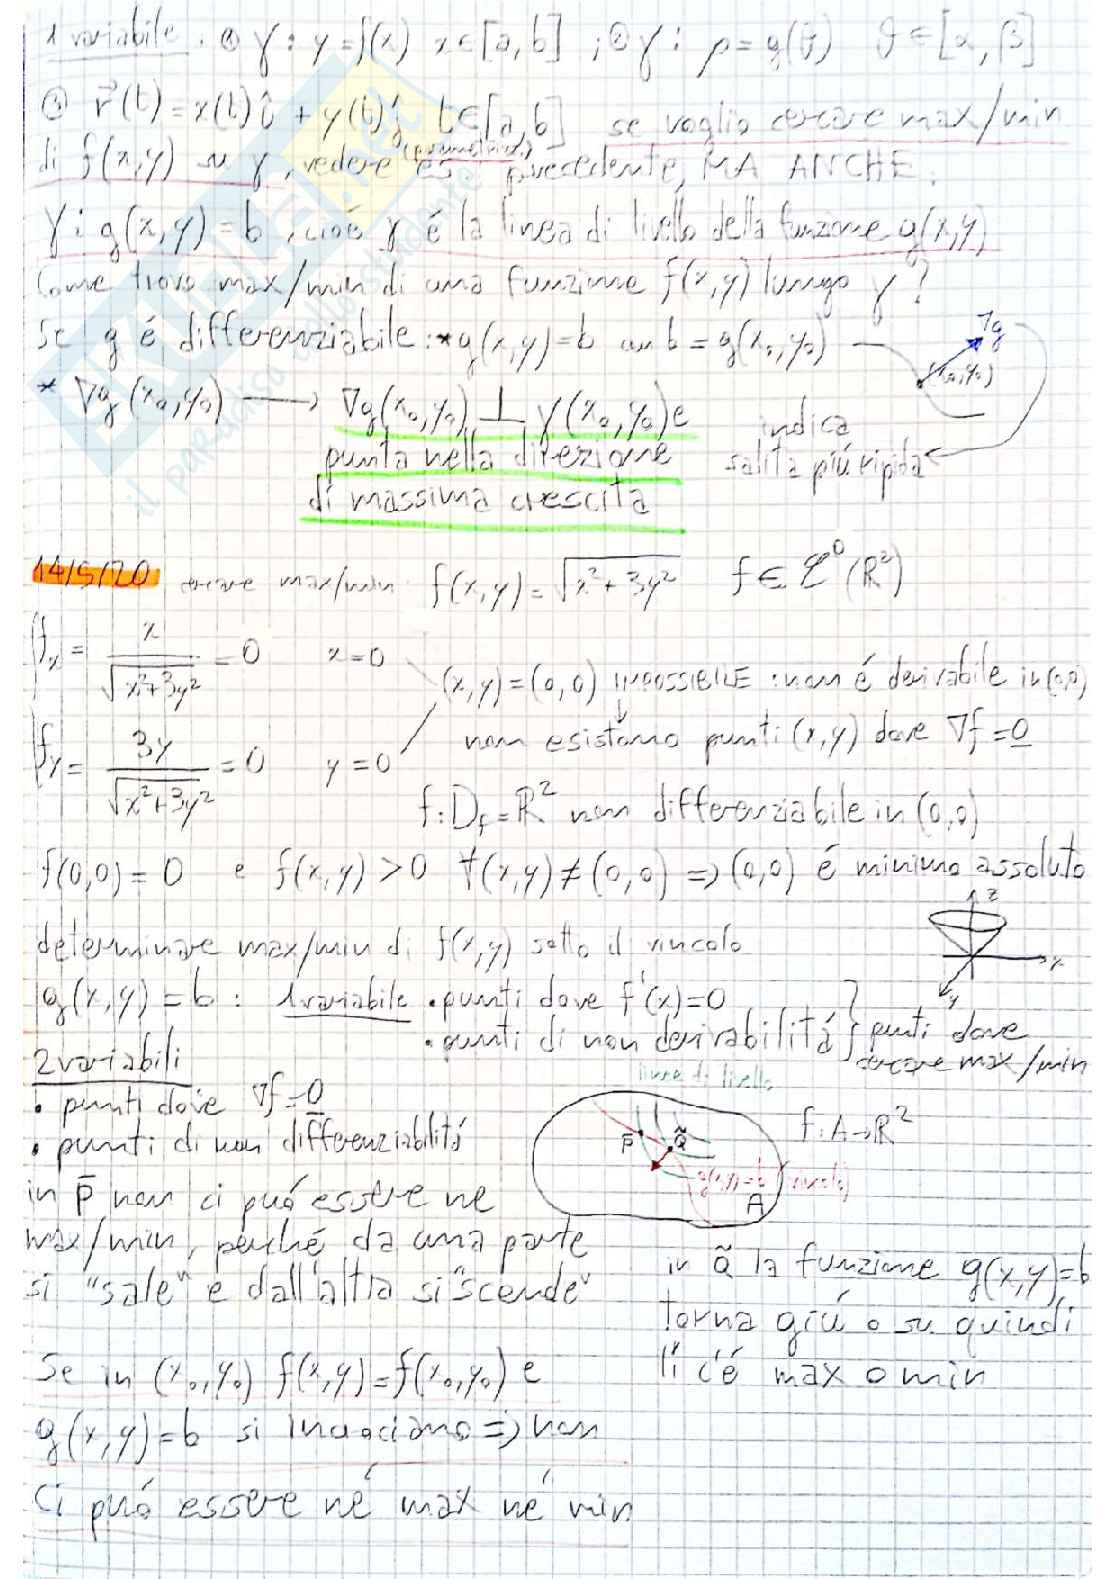 1 variabile. ① γ: y = f(x) x∈[a,b] ; ② γ: ρ = g(ϑ) ϑ∈[α,β]
③ r⃗(t) = x(t)î + y(t)ĵ t∈[a,b] se voglio cercare max/min
di f(x,y) su γ, vedere es precedente, MA ANCHE:
γ: g(x,y) = b, cioé γ é la linea di livello della funzione g(x,y)
Come trovo max/min di una funzione f(x,y) lungo γ?
Se g é differenziabile: * g(x,y) = b con b = g(x₀,y₀)
∇g
(x₀,y₀)
* ∇g(x₀,y₀) → ∇g(x₀,y₀) ⊥ γ(x₀,y₀) e
punta nella direzione
di massima crescita
indica
salita piú ripida
14/5/20 cercare max/min f(x,y) = √x²+3y² f ∈ C⁰(R²)
fx = x / √x²+3y² = 0 x=0
(x,y) = (0,0) IMPOSSIBILE: non é derivabile in (0,0)
non esistono punti (x,y) dove ∇f = 0
fy = 3y / √x²+3y² = 0 y=0
f: Df = R² non differenziabile in (0,0)
f(0,0) = 0 e f(x,y) > 0 ∀(x,y) ≠ (0,0) ⇒ (0,0) é minimo assoluto
z
x
y
determinare max/min di f(x,y) sotto il vincolo
g(x,y) = b : 1 variabile • punti dove f'(x)=0
• punti di non derivabilitá } punti dove
cercare max/min
2 variabili
• punti dove ∇f = 0
• punti di non differenziabilitá
linee di livello
P̄
Q̃
g(x,y)=b (vincolo)
A
f: A→R²
in P̄ non ci puó essere ne
max/min, perché da una parte
si "sale" e dall'altra si "scende"
in Q̃ la funzione g(x,y)=b
torna giú o su quindi
lí c'é max o min
Se in (x₀,y₀) f(x,y) = f(x₀,y₀) e
g(x,y) = b si incrociano ⇒ non
ci puó essere né max né min